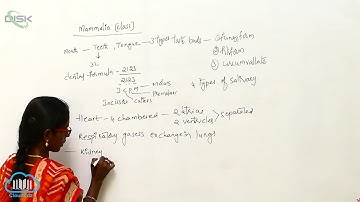 DISK
Mammalia (class)
Mouth - Teeth, Tongue - 3 types Taste buds - ① Fungiform
32
② Filiform
③ Circumvallate
dental formula - 2123
2123
I C P M
molars
Premolar
4 types of salivary
Incisors canines
Heart - 4 chambered - 2 atria
2 ventricles
separated
Respiratory gases exchange in lungs
- Kidney